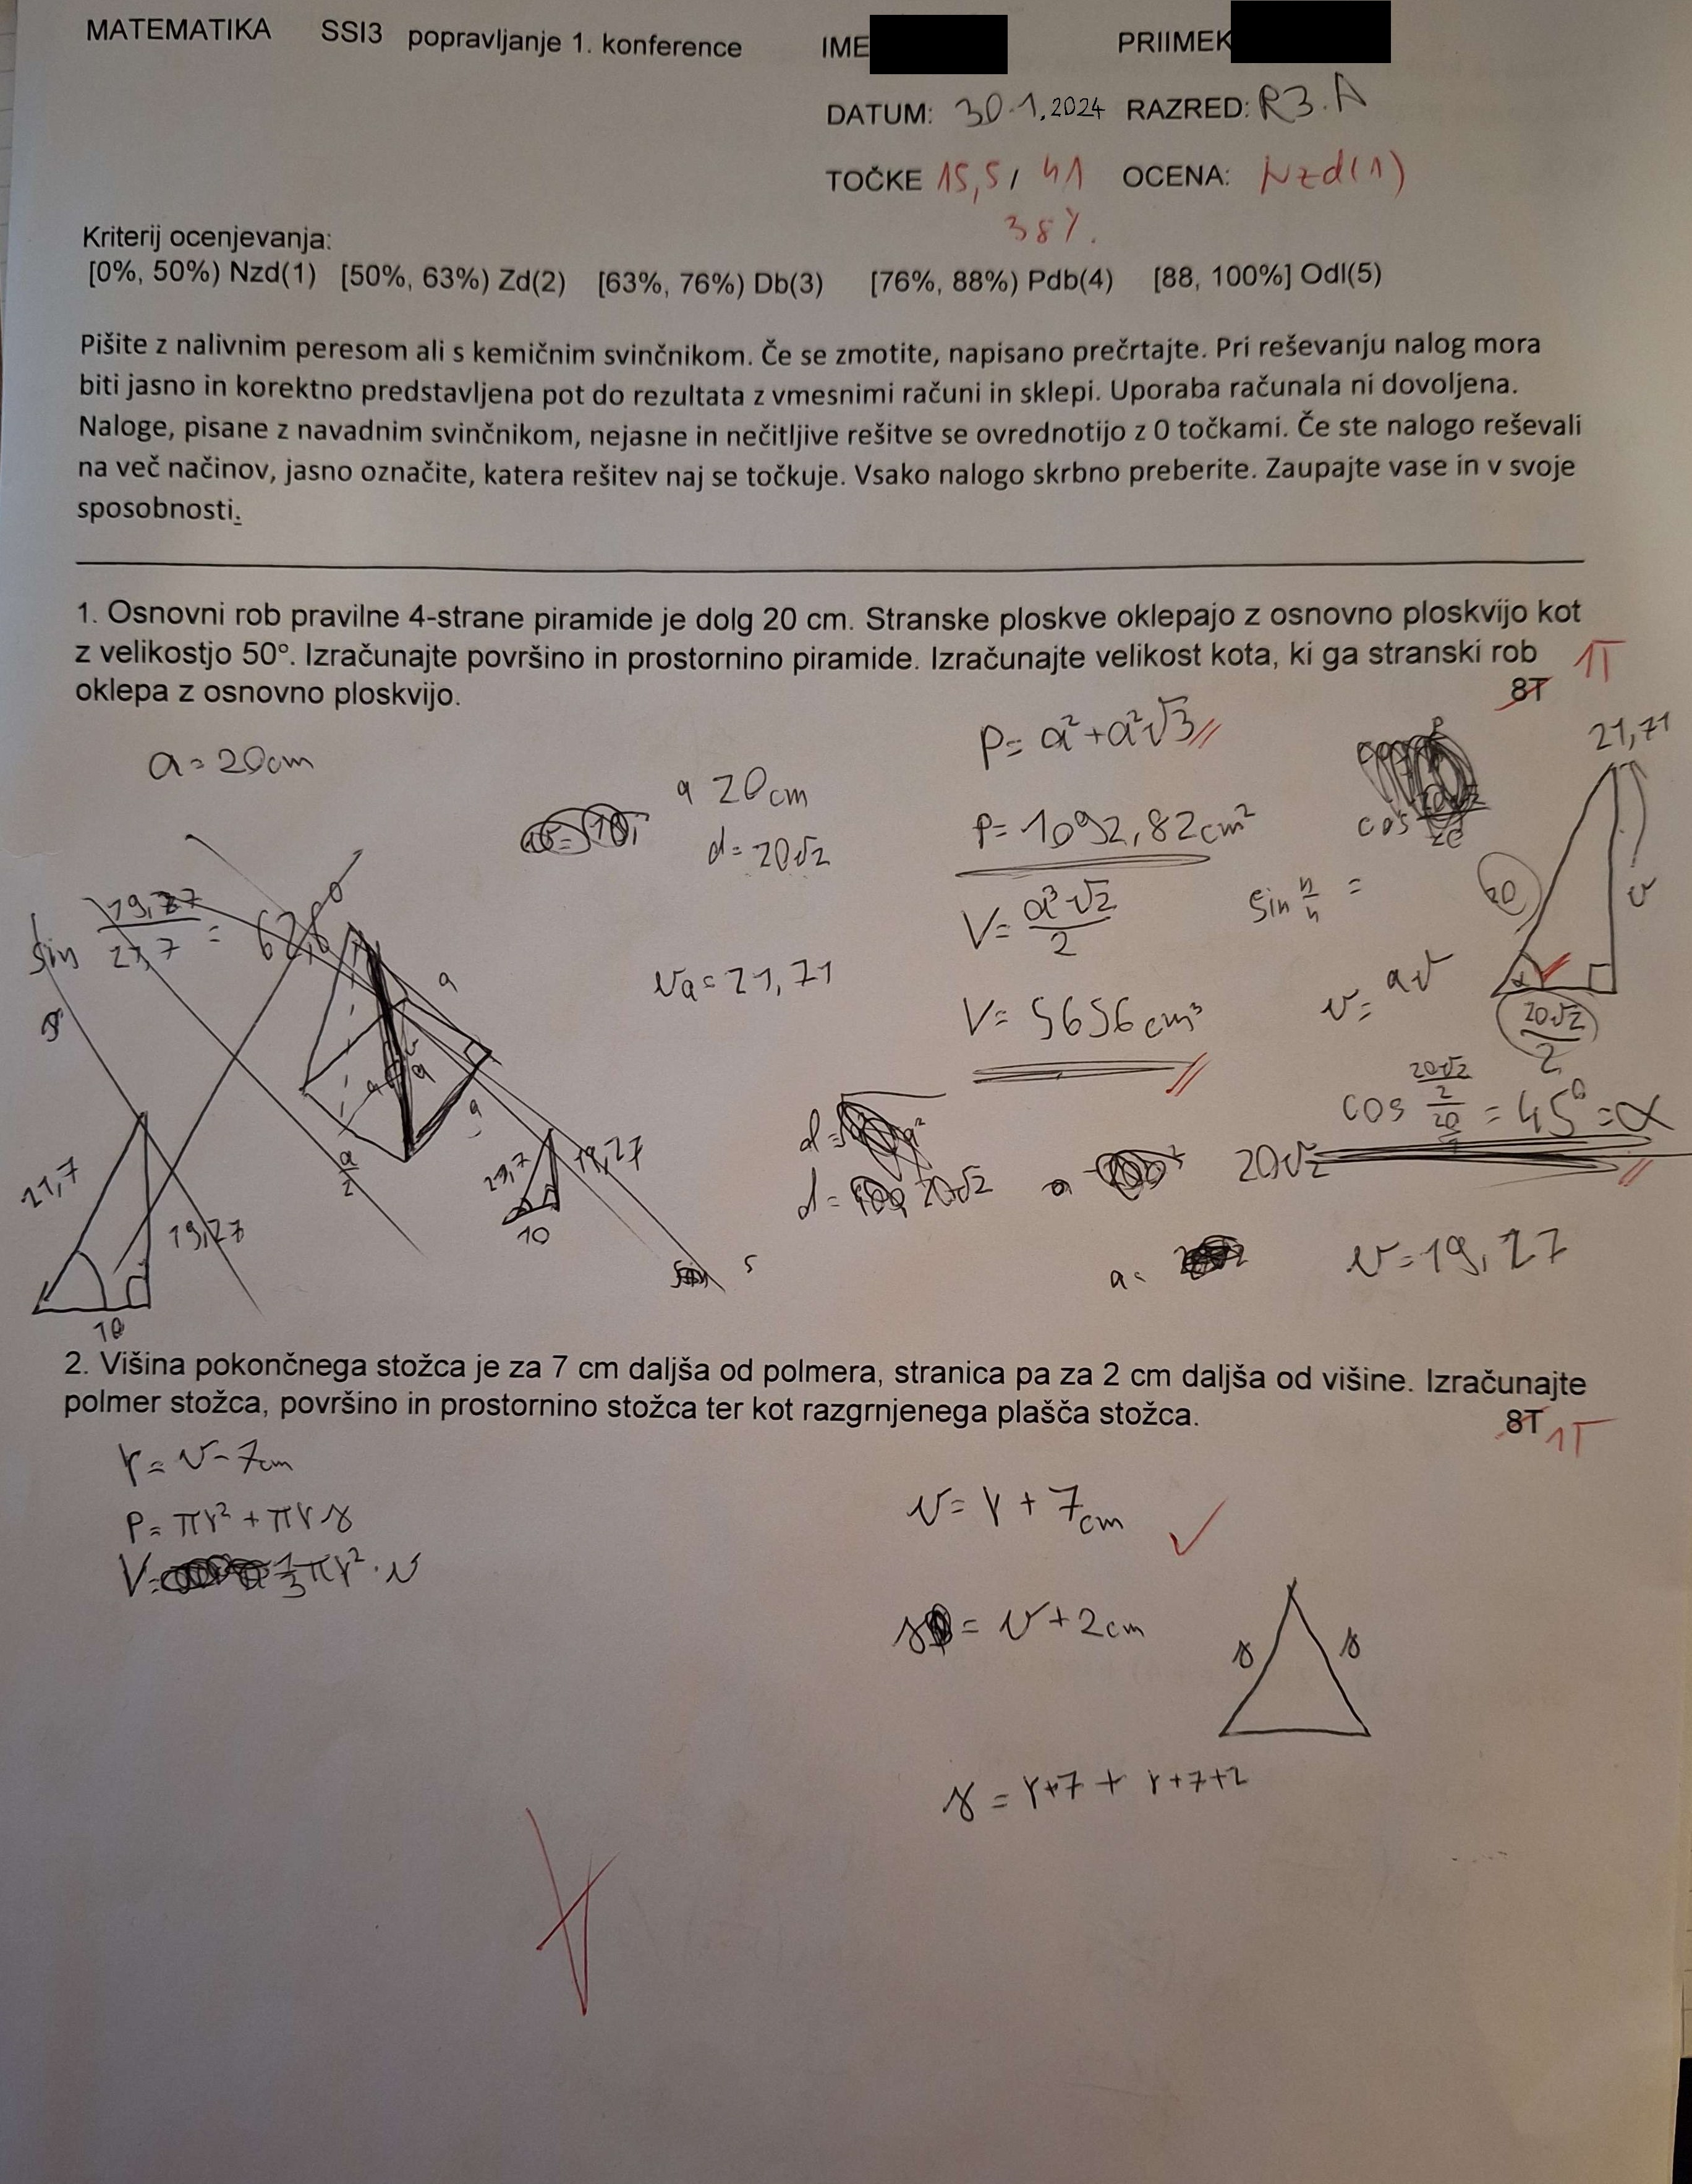 MATEMATIKA SSI3 popravljanje 1. konference IME PRIIMEK
DATUM: 30.1.2024 RAZRED: R3.A
TOČKE 15,5 / 41 OCENA: Nzd(1)
38%.
Kriterij ocenjevanja:
[0%, 50%) Nzd(1) [50%, 63%) Zd(2) [63%, 76%) Db(3) [76%, 88%) Pdb(4) [88, 100%] Odl(5)
Pišite z nalivnim peresom ali s kemičnim svinčnikom. Če se zmotite, napisano prečrtajte. Pri reševanju nalog mora
biti jasno in korektno predstavljena pot do rezultata z vmesnimi računi in sklepi. Uporaba računala ni dovoljena.
Naloge, pisane z navadnim svinčnikom, nejasne in nečitljive rešitve se ovrednotijo z 0 točkami. Če ste nalogo reševali
na več načinov, jasno označite, katera rešitev naj se točkuje. Vsako nalogo skrbno preberite. Zaupajte vase in v svoje
sposobnosti.
1. Osnovni rob pravilne 4-strane piramide je dolg 20 cm. Stranske ploskve oklepajo z osnovno ploskvijo kot
z velikostjo 50°. Izračunajte površino in prostornino piramide. Izračunajte velikost kota, ki ga stranski rob 1T
oklepa z osnovno ploskvijo. 8T
a = 20cm
a 20cm
d = 20√2
P = a² + a²√3
21,71
P = 1092,82 cm²
cos
20
v
sin 19,27/21,7 = 62,6°
V = a³·√2/2
sin n/n =
va = 21,71
V = 5656 cm³
v = av
α
20√2/2
a
a
a
a
a/2
cos (20√2/2)/20 = 45° = α
d =
d = 20√2
20√2
21,7
19,27
10
21,7
19,27
10
a =
v = 19,27
2. Višina pokončnega stožca je za 7 cm daljša od polmera, stranica pa za 2 cm daljša od višine. Izračunajte
polmer stožca, površino in prostornino stožca ter kot razgrnjenega plašča stožca. 8T 1T
r = v - 7cm
P = πr² + πrs
V = 1/3 πr² · v
v = r + 7cm
s = v + 2cm
s s
s = r+7 + r+7+2